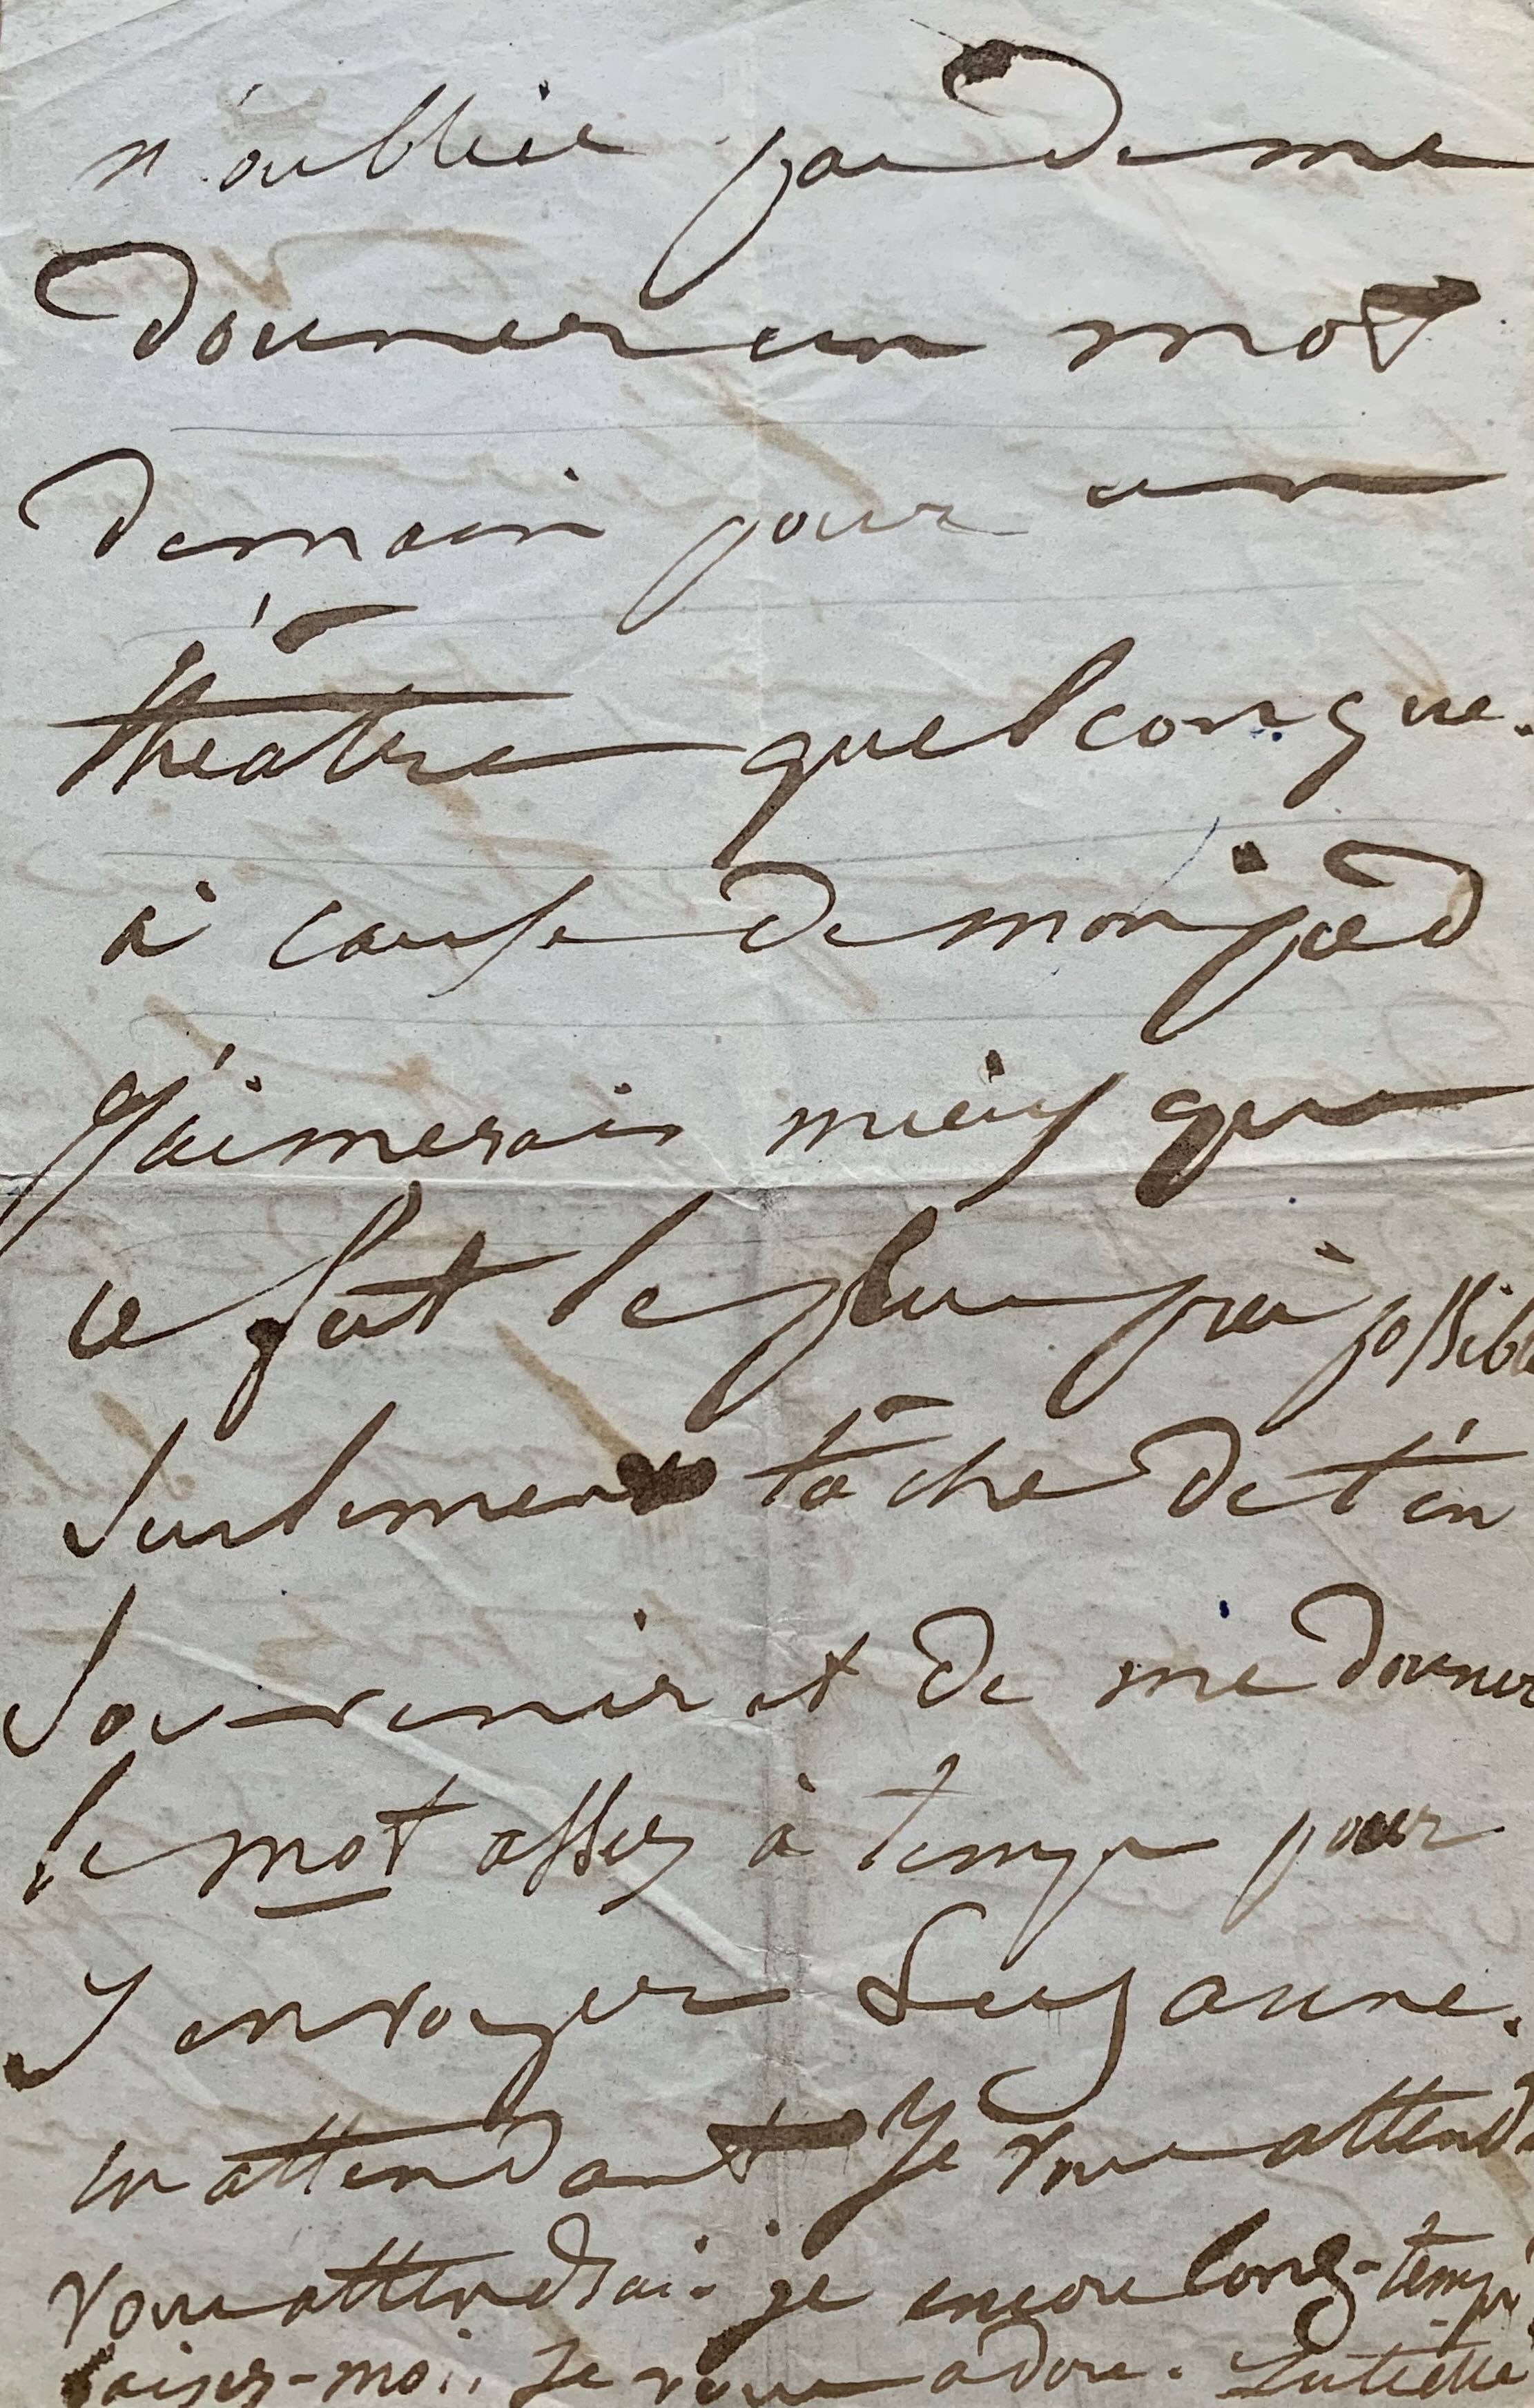 n'oublie pas de me
donner un mot
demain pour un
théâtre quelconque.
à cause de mon pied
J'aimerais mieux que
ce fut le plus près possible
Seulement tâche de t'en
souvenir et de me donner
le mot assez à temps pour
y envoyer Suzanne.
en attendant je vous attends
vous attendrai-je encore long-temps
baisez-moi. Je vous adore. Juliette